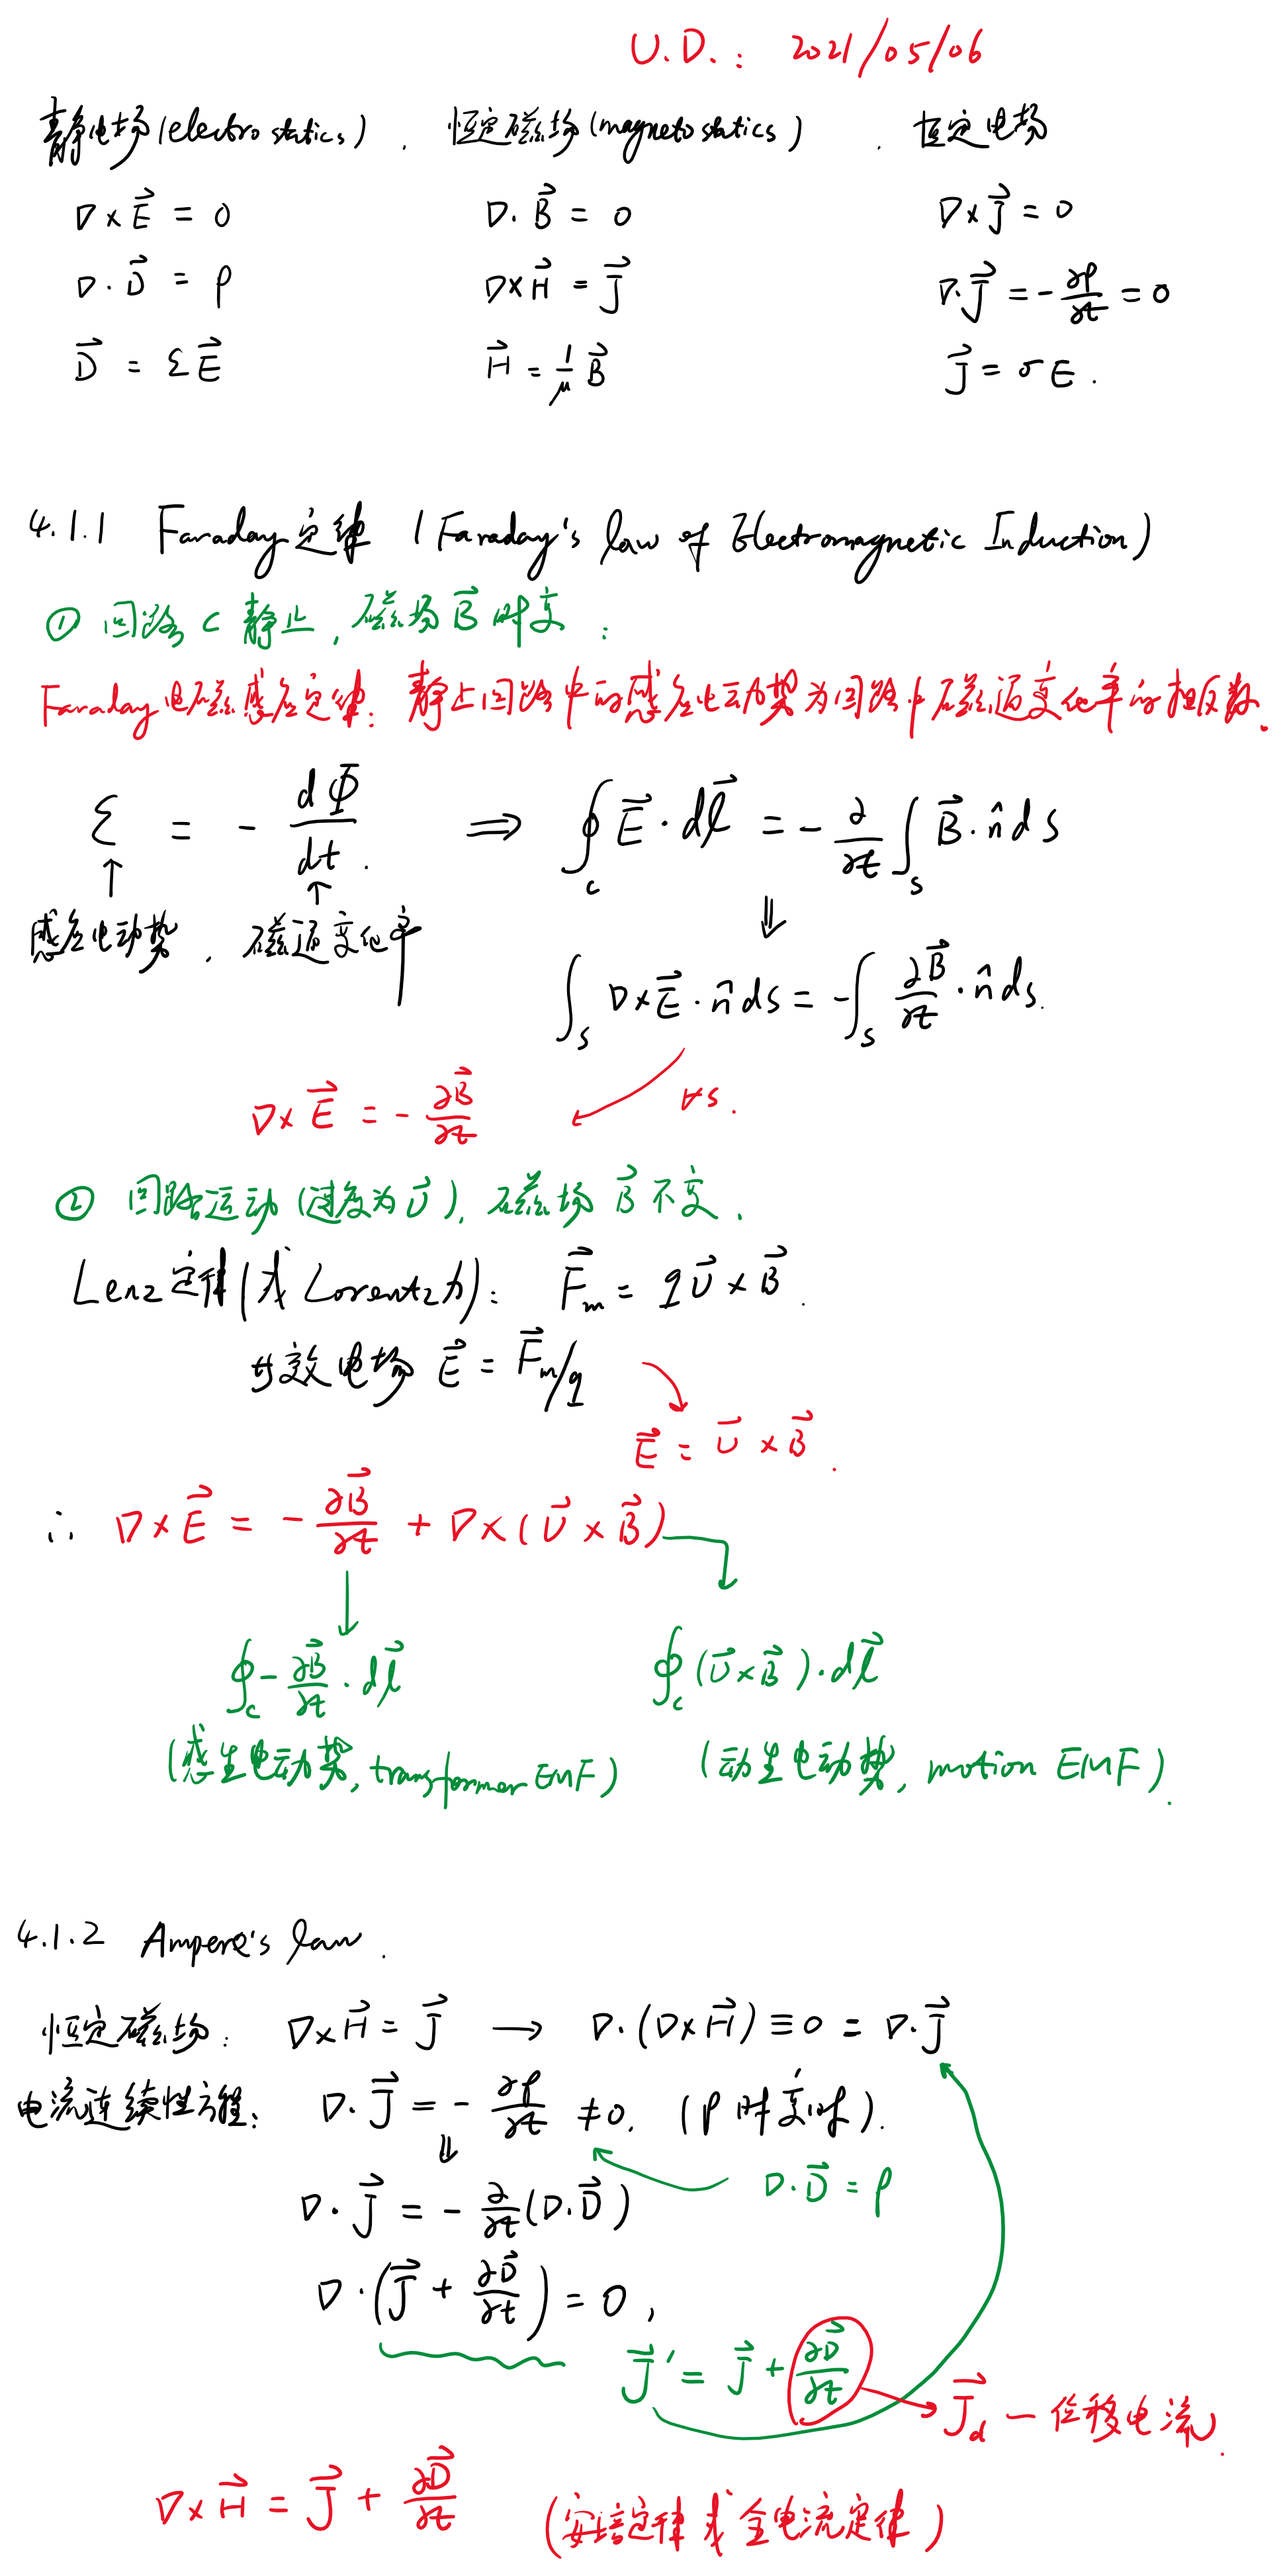 U.D.: 2021/05/06
静电场(electro statics), 恒定磁场(magneto statics), 恒定电场
∇×E⃗ = 0    ∇·B⃗ = 0    ∇×J⃗ = 0
∇·D⃗ = ρ    ∇×H⃗ = J⃗    ∇·J⃗ = -∂ρ/∂t = 0
D⃗ = εE⃗    H⃗ = 1/μ B⃗    J⃗ = σE.
4.1.1 Faraday定律 (Faraday's law of Electromagnetic Induction)
① 回路 C 静止, 磁场 B⃗ 时变:
Faraday电磁感应定律: 静止回路中的感应电动势为回路中磁通变化率的相反数.
ℰ = - dΦ/dt. ⇒ ∮_C E⃗·dl⃗ = - ∂/∂t ∫_S B⃗·n̂ dS
↑ ↑ ⇓
感应电动势, 磁通变化率
∫_S ∇×E⃗·n̂ dS = -∫_S ∂B⃗/∂t·n̂ dS.
∇×E⃗ = - ∂B⃗/∂t    ∀S.
② 回路运动 (速度为 υ⃗), 磁场 B⃗ 不变.
Lenz定律(或 Lorentz力): F⃗_m = qυ⃗×B⃗.
等效电场 E⃗ = F⃗_m/q
E⃗ = υ⃗×B⃗.
∴ ∇×E⃗ = - ∂B⃗/∂t + ∇×(υ⃗×B⃗)
∮_C - ∂B⃗/∂t·dl⃗    ∮_C (υ⃗×B⃗)·dl⃗
(感生电动势, transformer EMF)    (动生电动势, motion EMF).
4.1.2 Ampere's law.
恒定磁场: ∇×H⃗ = J⃗ → ∇·(∇×H⃗) ≡ 0 = ∇·J⃗
电流连续性方程: ∇·J⃗ = - ∂ρ/∂t ≠ 0. (ρ 时变时).
⇓ ∇·D⃗ = ρ
∇·J⃗ = - ∂/∂t (∇·D⃗)
∇·(J⃗ + ∂D⃗/∂t) = 0,
J⃗' = J⃗ + ∂D⃗/∂t → J⃗_d — 位移电流.
∇×H⃗ = J⃗ + ∂D⃗/∂t (安培定律或全电流定律)